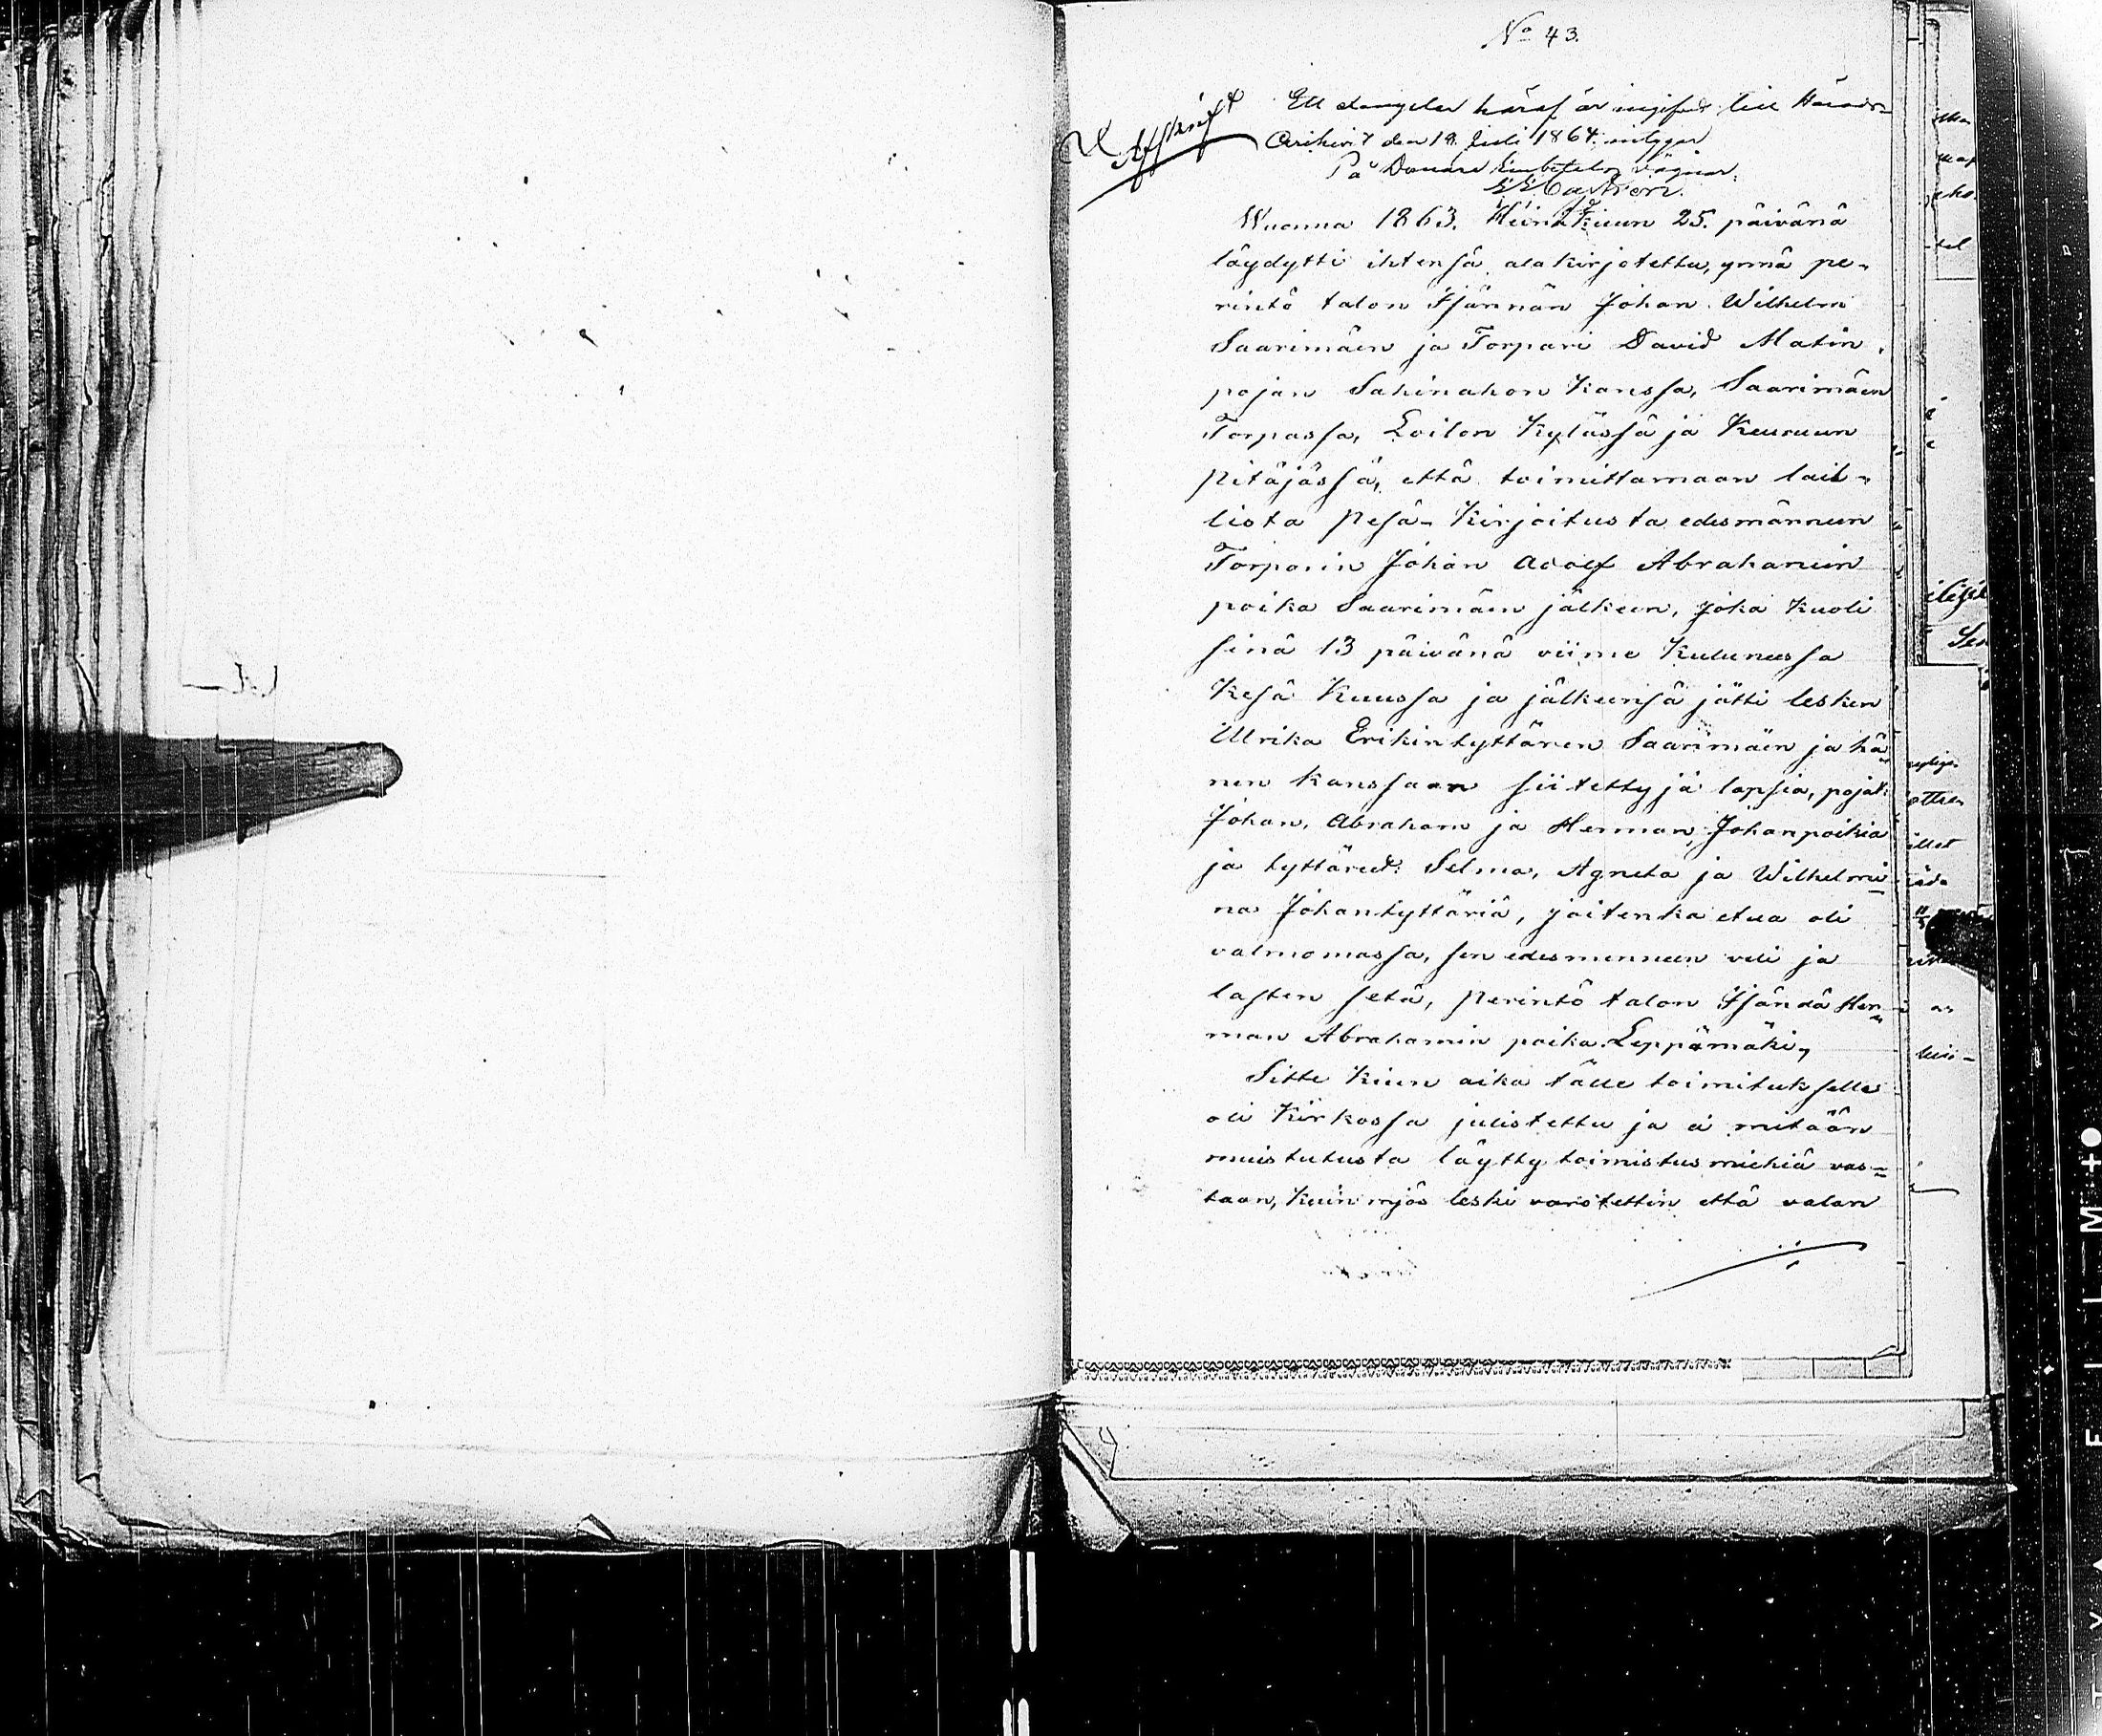 No 43.
Afskrift
Ett exemplar häraf är ingifvet till Härads-
Arkivet den 18. Juli 1864: intygar
På Domare Embetets vägnar:
Castrén.
Wuonna 1863. Heinäkuun 25. päivänä
läydytti ihtensä alakirjotettu, ynnä pe-
rintö talon Isännän Johan Wilhelm
Saarimäen ja Torpari David Matin
pojan Sahinahon kanssa, Saarimäen
Torpassa, Loilon Kylässä ja Keuruun
pitäjässä, että toimittamaan lail-
lista pesä-Kirjoitusta edesmännen
Torparin Johan Adolf Abrahamin
poika Saarimäen jälkeen, joka kuoli
sinä 13 päivänä viime kuluneessa
Kesä Kuussa ja jälkeensä jätti lesken
Ulrika Erikintyttären Saarimäen ja hä-
nen kanssaan siitettyjä lapsia, pojat:
Johan, Abraham ja Herman, Johanpoikia
ja tyttäret: Selma, Agneta ja Wilhelmi-
na Johantyttäriä, joitenka etua oli
valmomassa, sen edesmenneen veli ja
lasten setä, perintö talon Isändä Her-
man Abrahamin poika Leppämäki,
Sitte kuin aika tälle toimitukselle
oli Kirkossa julistettu ja ei mitään
muistutusta läytty toimistusmiehiä vas-
taan, kuin myös leski varotettin että valan